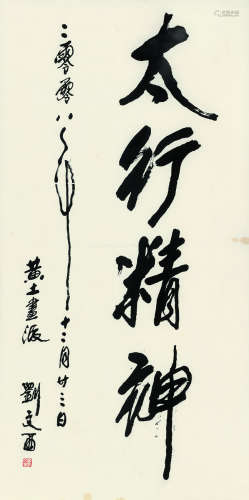 太行精神
二零零八年十二月廿三日
黄土畫派
劉文西